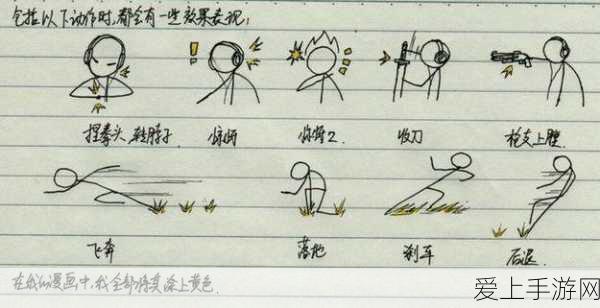 包括以下动作时,都会有一些效果表现:
捏拳头,转脖子 惊吓 惊吓2 收刀 枪支上膛
飞奔 落地 刹车 后退
在我的漫画中,我全部将其涂上黄色.
爱上手游网